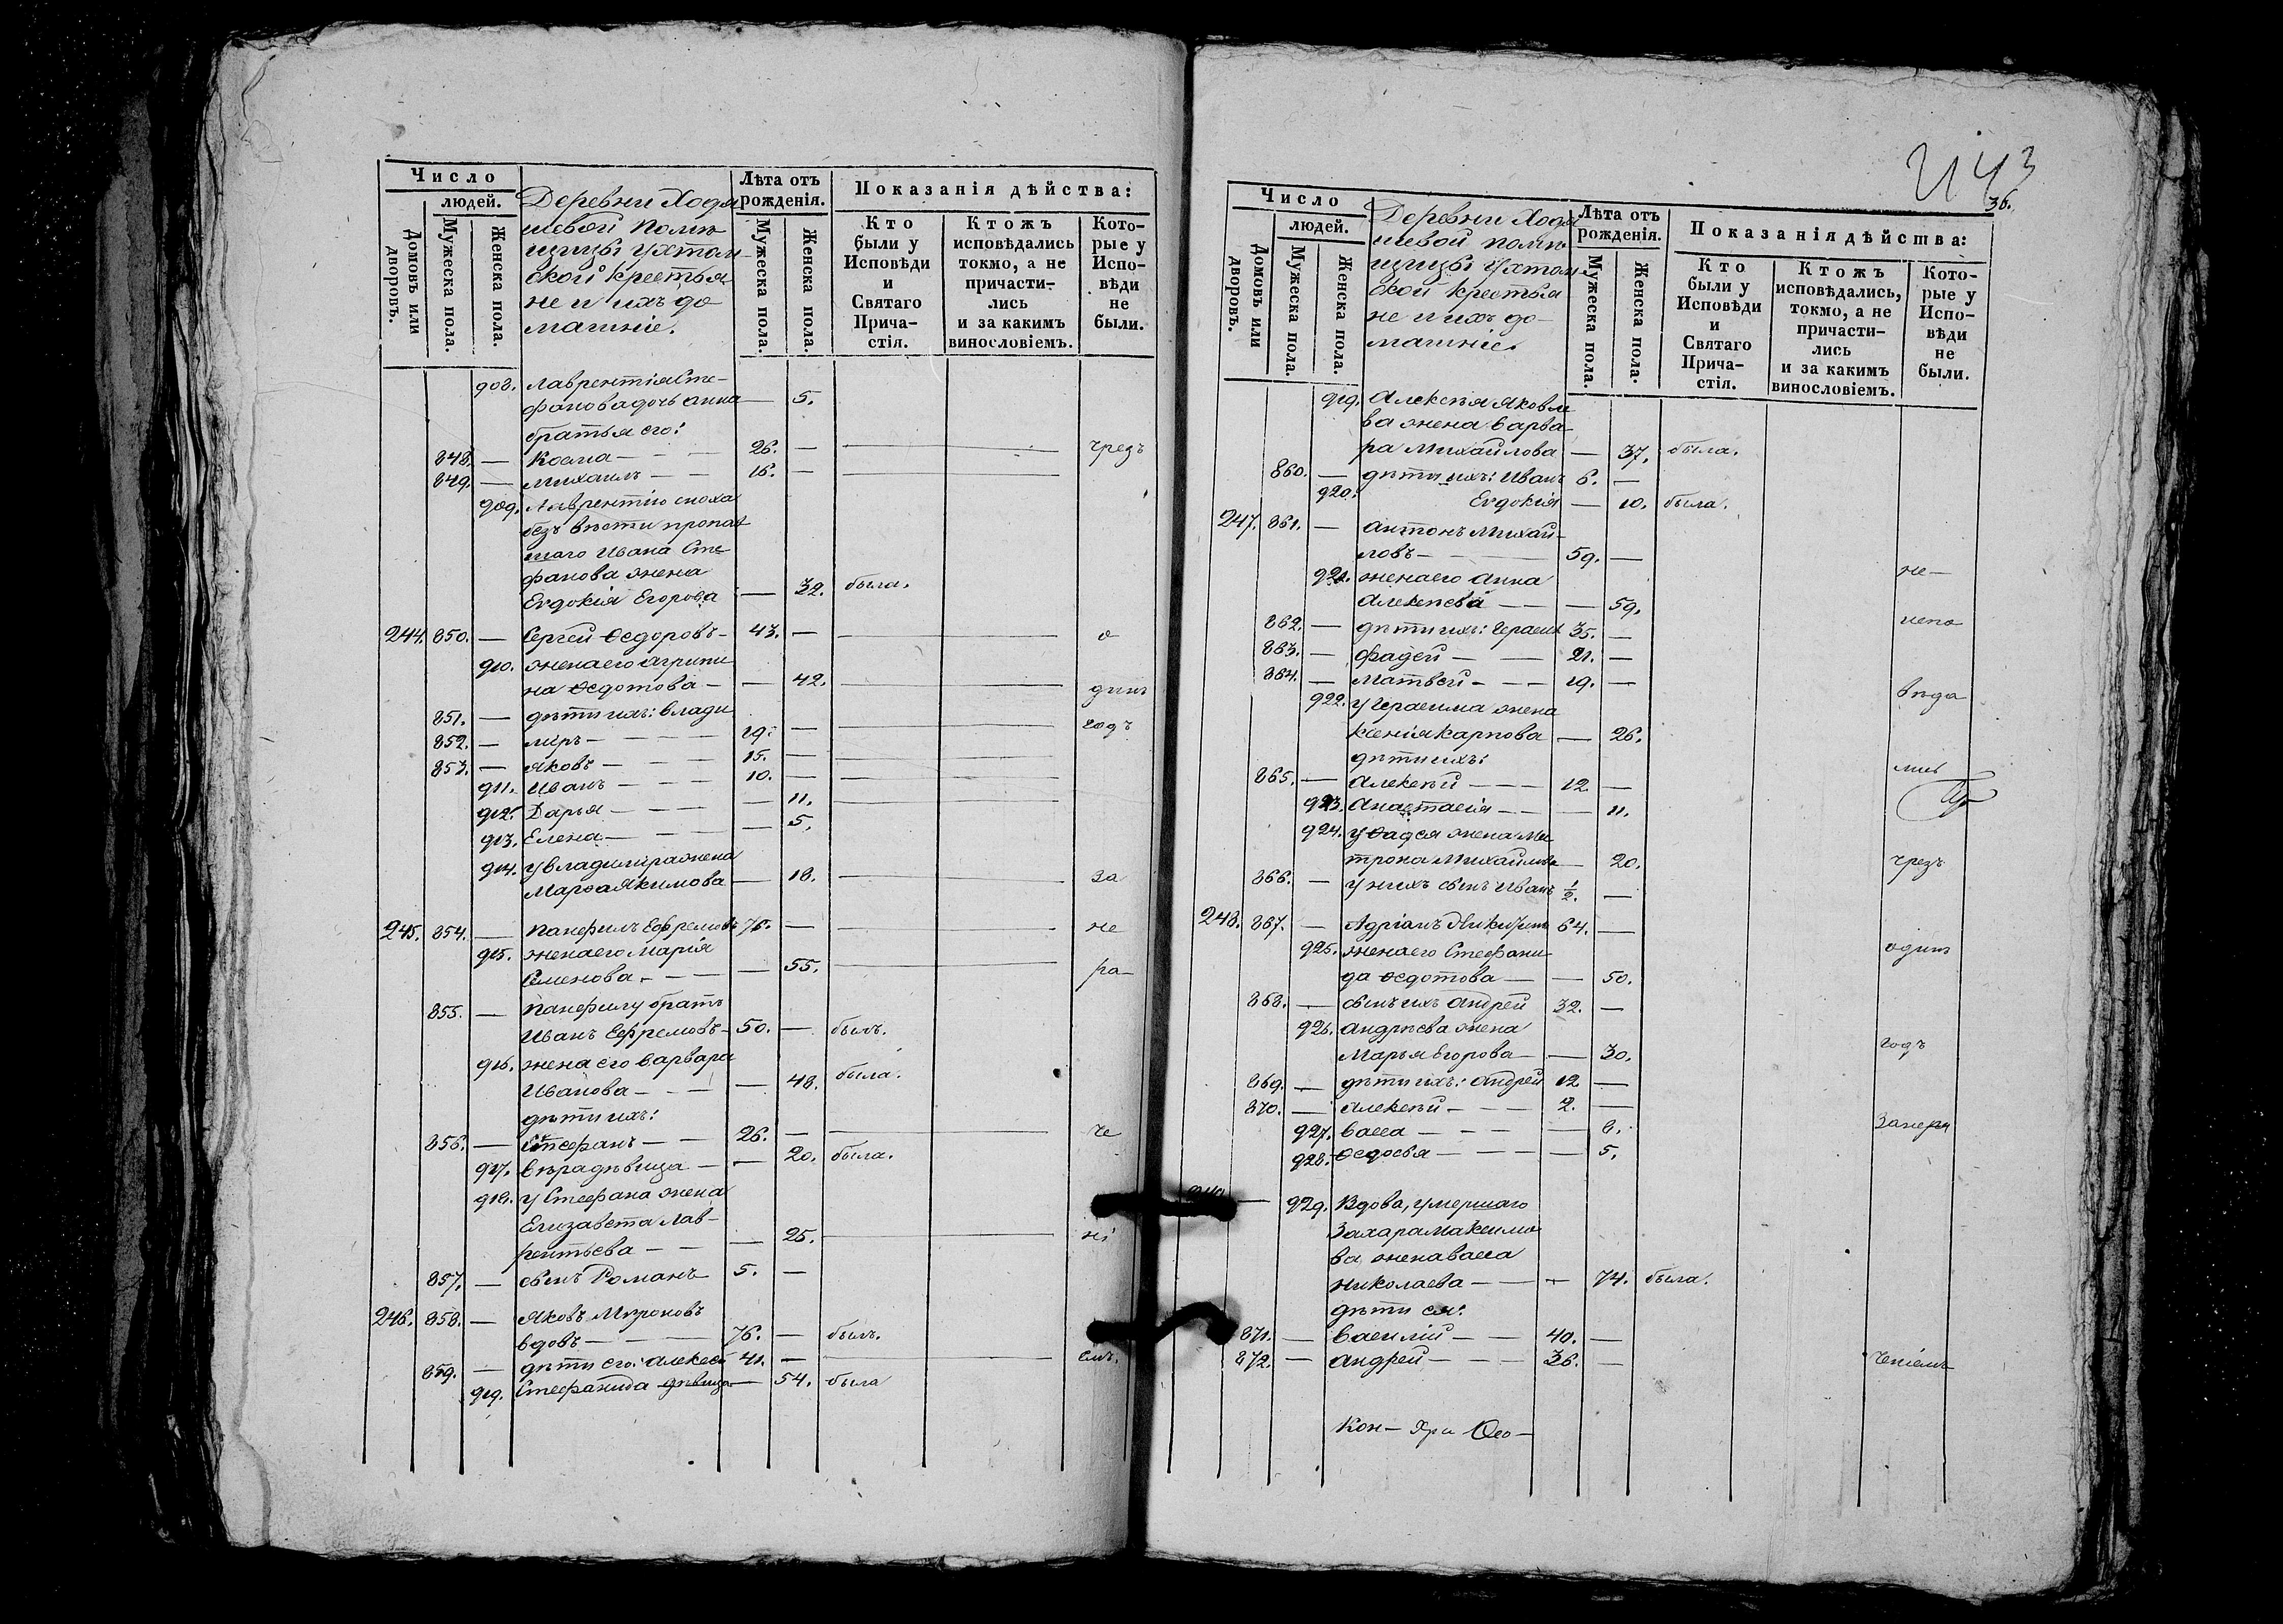 Число
людей.
Домовъ или дворовъ.
Мужеска пола.
Женска пола.
Деревни Ходя
шевой помѣ
щицы Ухтом
ской крестья
не и ихъ до
машніе.
Лѣта отъ
рожденія.
Мужеска пола.
Женска пола.
Показанія дѣйства:
Кто
были у
Исповѣди
и
Святаго
Прича-
стія.
Ктожъ
исповѣдались
токмо, а не
причасти-
лись
и за какимъ
винословіемъ.
Кото-
рые у
Испо-
вѣди
не
были.
908. Лаврентія Сте-
фанова дочь Анна — 5.
братья его:
848. — Косма — — — 26. — чрезъ
849. — Михаилъ — 16. —
909. Лаврентію сноха
безъ вѣсти пропав
шаго Ивана Сте-
фанова жена
Евдокія Егорова — 32. была.
244. 850. — Сергей Ѳедоровъ — 43. — о
910. жена его Агрипи
на Ѳедотова — — 42. динъ
851. — дѣти ихъ: Влади
852. — міръ — — — 19. — годъ
853. — Яковъ — — — 15. —
911. Иванъ — — — 10. —
912. Дарья — — — — 11.
913. Елена — — — — 5.
914. у Владиміра жена
Марѳа Якимова — 18. за
245. 854. — Панфилъ Ефремовъ 76. — не
915. жена его Марія
Семенова — — — — 55. ра-
855. — Панфилу братъ
Иванъ Ефремовъ — 50. — былъ.
916. жена его Варвара
Иванова — — — — 48. была.
дѣти ихъ:
856. — Стефанъ — — 26. — че
917. Вѣра дѣвица — — 20. была.
918. у Стефана жена
Елизавета Лав-
рентьева — — — 25. ні
857. — сынъ Романъ 5. —
246. 858. — Яковъ Мироновъ
вдовъ — — — 76. — былъ.
859. — дѣти его: Алексѣй 41. — емъ.
919. Стефанида дѣвица — 54. была
43
36.
Число
людей.
Домовъ или дворовъ.
Мужеска пола.
Женска пола.
Деревни Ходя
шевой помѣ
щицы Ухтом
ской крестья
не и ихъ до-
машніе.
Лѣта отъ
рожденія.
Мужеска пола.
Женска пола.
Показанія дѣйства:
Кто
были у
Исповѣди
и
Святаго
Прича-
стія.
Ктожъ
исповѣдались,
токмо, а не
причасти-
лись
и за какимъ
винословіемъ.
Кото-
рые у
Испо-
вѣди
не
были.
919. Алексѣя Яковле
ва жена Варва-
ра Михайлова — 37. была.
860. — дѣти ихъ: Иванъ 6. —
920. Евдокія — 10. была.
247. 861. — Антонъ Михай-
ловъ — — — 59. —
921. жена его Анна не-
Алексѣева — — — 59.
862. — дѣти ихъ: Герасим 35. — испо
863. — Фадей — — 21. —
864. — Матвей — — — 19. —
922. у Герасима жена вѣда
Ксенія Карпова — 26.
дѣти ихъ:
865. — Алексѣй — — — 12 — лись
923. Анастасія — — — 11.
924. у Фадея жена Ма
трона Михайлова — 20. чрезъ
866. — у нихъ сынъ Иванъ ½. —
248. 867. — Адріанъ Никифоровъ 64. —
925. жена его Стефани одинъ
да Ѳедотова — — 50.
868. — сынъ ихъ Андрей 32. —
926. Андрѣева жена
Марья Егорова — — 30. годъ
869. — дѣти ихъ: Андрей 12 —
870. — Алексѣй — — — 2. —
927. Васса — — — — 8. занера
928. Ѳедосья — — — — 5.
— 929. Вдова, умершаго
Захара Максимо
ва жена Васса
Николаева — — — 74. была.
дѣти ея:
871. — Василій — — 40. —
872. — Андрей — — — 36. — ченіемъ